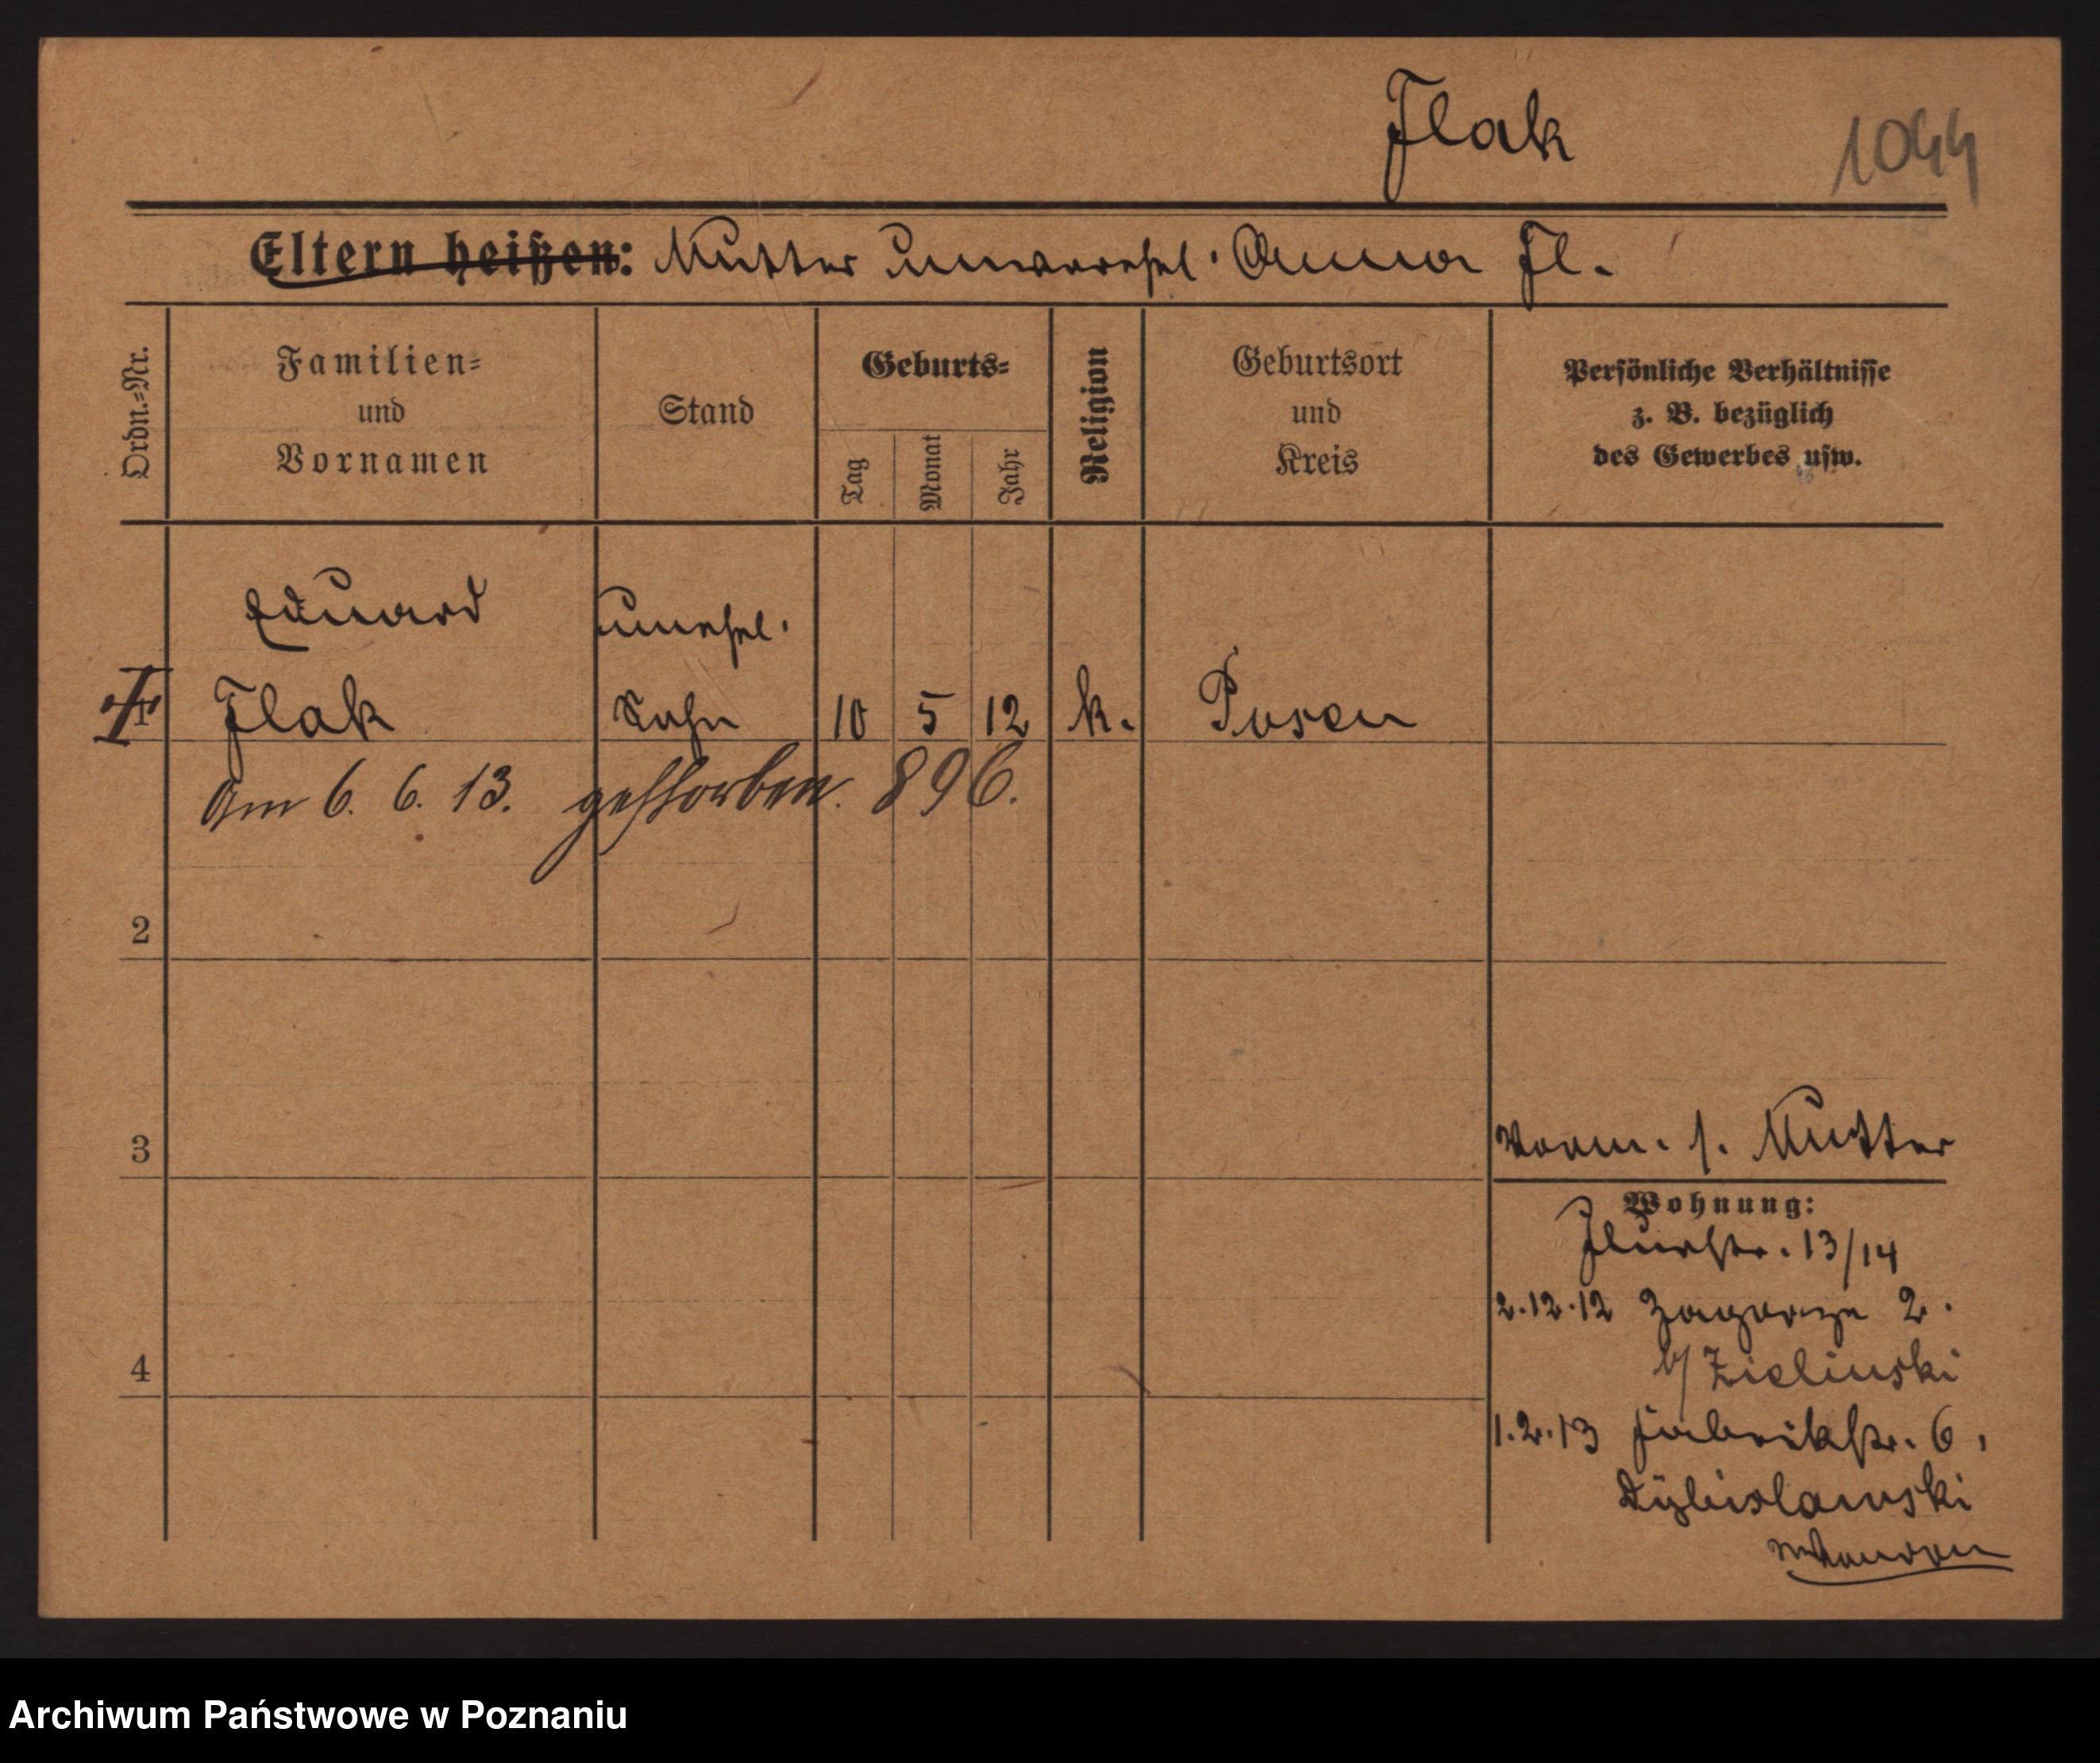 Flak
1044
Eltern heißen: Mutter unverehel. Anna Fl.
Ordn.-Nr.
Familien-
und
Vornamen
Stand
Geburts-
Tag
Monat
Jahr
Religion
Geburtsort
und
Kreis
Persönliche Verhältnisse
z. B. bezüglich
des Gewerbes usw.
Eduard
unehel.
1 Flak Sohn 10 5 12 k. Posen
Am 6. 6. 13. gestorben. 896.
2
3
4
Vorm. s. Mutter
Wohnung:
Flurstr. 13/14
2.12.12 Zagorze 2.
b/ Zielinski
1.2.13 Fabrikstr. 6,
Archiwum Państwowe w Poznaniu